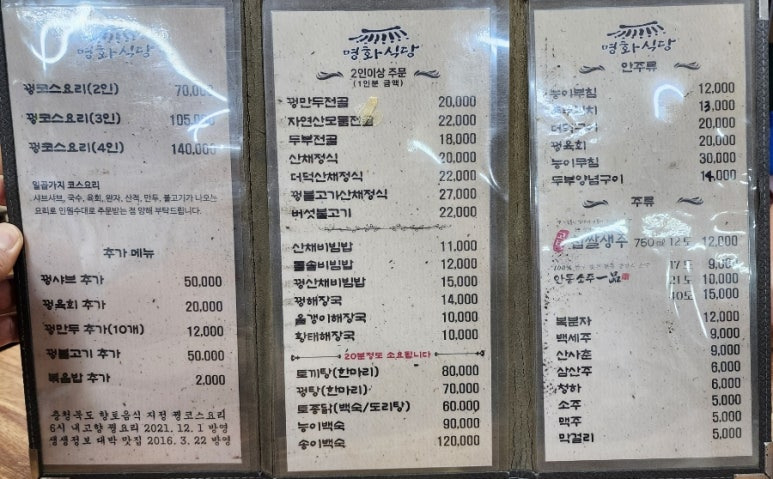 명화식당
꿩코스요리(2인) 70,000
꿩코스요리(3인) 105,000
꿩코스요리(4인) 140,000
일곱가지 코스요리
샤브샤브, 국수, 육회, 완자, 산적, 만두, 불고기가 나오는
요리로 인원수대로 주문받는 점 양해 부탁드립니다.
추가 메뉴
꿩샤브 추가 50,000
꿩육회 추가 20,000
꿩만두 추가(10개) 12,000
꿩불고기 추가 50.000
볶음밥 추가 2.000
충청북도 향토음식 지정 꿩코스요리
6시 내고향 꿩요리 2021. 12. 1 방영
생생정보 대박 맛집 2016. 3. 22 방영
명화식당
2인이상 주문
(1인분 금액)
꿩만두전골 20,000
자연산모듬전골 22,000
두부전골 18,000
산채정식 20,000
더덕산채정식 22,000
꿩불고기산채정식 27,000
버섯불고기 22,000
산채비빔밥 11,000
올솔비빔밥 12,000
꿩산채비빔밥 15,000
꿩해장국 14,000
올갱이해장국 10,000
황태해장국 10,000
20분정도 소요됩니다
토끼탕(한마리) 80,000
꿩탕(한마리) 70,000
토종닭(백숙/도리탕) 60.000
능이백숙 90,000
송이백숙 120,000
명화식당
안주류
12,000
13,000
더덕구이 20,000
꿩육회 20,000
능이무침 30,000
두부양념구이 14,000
주류
찹쌀생주 750㎖ 12도 12,000
17도 9,000
안동소주一品 21도 10,000
40도 15,000
복분자 12,000
백세주 9,000
산사춘 9,000
삼산주 6,000
청하 6,000
소주 5,000
맥주 5,000
막걸리 5,000